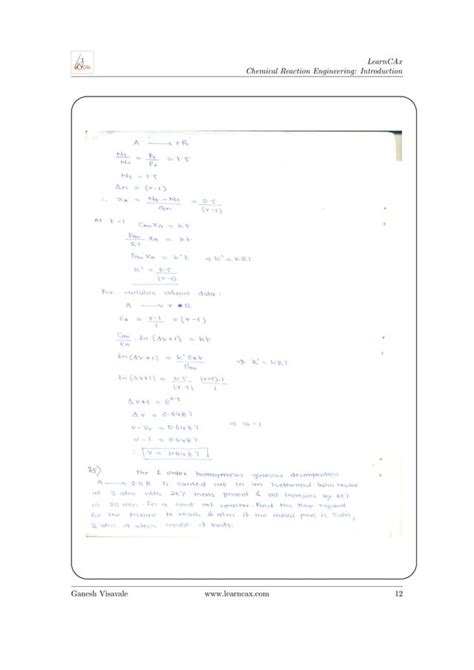 LearnCAx
Chemical Reaction Engineering: Introduction
A → rR
N₂/N₀ = P₂/P₀ = 1.5
N₂ = 1.5
Δn = (r-1)
∴ XA = N₂ - N₀/Δn = 0.5/(r-1)
At t = 1
CA0 XA = kt
PA0/RT XA = kt
PA0 XA = k't ⇒ k' = kRT
k' = 0.5/(r-1)
For variable volume data:
A → r R
εA = r-1/1 = (r-1)
CA0/εA ln (ΔV+1) = kt
ln (ΔV+1) = k' εA t/PA0 ⇒ k' = kRT
ln (ΔV+1) = 0.5/(r-1) (r-1).1/1
ΔV+1 = e^0.5
ΔV = 0.6487
V - V₀ = 0.6487 ⇒ V₀ = 1
V - 1 = 0.6487
∴ V = 1.6487
25) The order homogeneous gaseous decomposition
A → 2.5 R is carried out in an isothermal batch reactor
at 2 atm with 20% inerts present & vol increases by 60%
in 20 min. For a const vol reactor. Find the time required
for the pressure to reach 8 atm if the initial pres is 5 atm,
2 atm of which consist of inerts.
Ganesh Visavale www.learncax.com 12